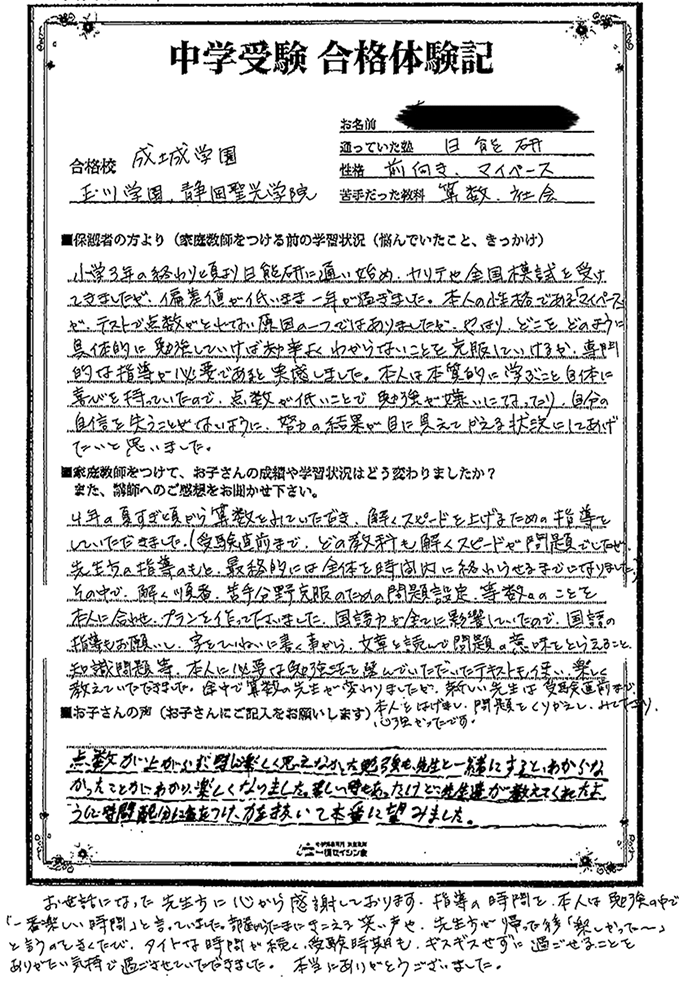 中学受験 合格体験記
お名前
通っていた塾 日能研
性格 前向き、マイペース
苦手だった教科 算数、社会
合格校 成城学園
玉川学園、静岡聖光学院
■保護者の方より（家庭教師をつける前の学習状況（悩んでいたこと、きっかけ）
小学3年の終わり頃より日能研に通い始め、カリテや全国模試を受け
てきましたが、偏差値が低いまま一年が過ぎました。本人の性格である「マイペース」
が、テストで点数がとれない原因の一つではありましたが、やはり、どこを、どのように
具体的に勉強していけば効率よくわからないことを克服していけるか、専門
的な指導が必要であると実感しました。本人は本質的に学ぶこと自体に
喜びを持っていたので、点数が低いことで勉強が嫌いになったり、自分の
自信を失うことがないように、努力の結果が目に見えて行える状況にしてあげ
たいと思いました。
■家庭教師をつけて、お子さんの成績や学習状況はどう変わりましたか？
また、講師へのご感想をお聞かせ下さい。
4年の夏すぎ頃から算数をみていただき、解くスピードを上げるための指導を
していただきました。（受験直前まで、どの教科も解くスピードが問題でしたが、
先生方の指導のもと、最終的には全体を時間内に終わらせるまでになりました）
その中で、解く順番、苦手分野克服のための問題設定、等数々のことを
本人に合わせ、プランを作って下さいました。国語力が全てに影響していたので、国語の
指導もお願いし、字をていねいに書く事から、文章を読んで問題の意味をとらえること、
知識問題等、本人に必要な勉強法を選んでいただいたテキストも使い、楽しく
教えていただきました。途中で算数の先生が変わりましたが、新しい先生は受験直前まで、
本人をはげまし、問題をくりかえし、みて下さり、
心強かったです。
■お子さんの声（お子さんにご記入をお願いします）
点数が上がらない時は楽しく思えなかった勉強も、先生と一緒にすると、わからな
かったことがわかり、楽しくなりました。苦しい時もあったけど、先生達が教えてくれたよ
うに時間配分に気をつけ、力を抜いて本番に望みました。
一橋セイシン会
お世話になった先生方に心から感謝しております。指導の時間を、本人は勉強の中で
「一番楽しい時間」と言っていました。部屋からたまにきこえる笑い声や、先生方が帰った後「楽しかった〜」
と言うのをきくたび、タイトな時間が続く受験時期も、ギスギスせずに過ごせることを
ありがたい気持で過ごさせていただきました。本当にありがとうございました。